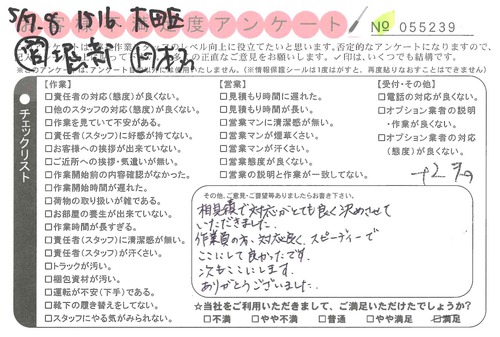 お客様不満足度アンケート
№ 055239
5/7.8 1516 大田区
より良い作業とサービスのレベル向上に役立てたいと思います。否定的なアンケートになりますので、
多くの正直なご意見をお願いします。✓印は、いくつでも結構です。
チェックリスト
【作業】
□責任者の対応(態度)が良くない。
□他のスタッフの対応(態度)が良くない。
□作業を見ていて不安がある。
□責任者(スタッフ)に好感が持てない。
□お客様への挨拶が出来ていない。
□ご近所への挨拶・気遣いが無い。
□作業開始前の内容確認がなかった。
□作業開始時間が遅れた。
□荷物の取り扱いが雑である。
□お部屋の養生が出来ていない。
□作業時間が長すぎる。
□責任者(スタッフ)に清潔感が無い。
□責任者(スタッフ)が汗くさい。
□トラックが汚い。
□梱包資材が汚い。
□運転が不安(下手)である。
□靴下の履き替えをしてない。
□スタッフにやる気がみられない。
【営業】
□見積もり時間に遅れた。
□見積もり時間が長い。
□営業マンに清潔感が無い。
□営業マンが煙草くさい。
□営業マンが汗くさい。
□営業態度が良くない。
□営業の説明と作業が一致してない。
【受付・その他】
□電話の対応が良くない。
□オプション業者の説明
・作業が良くない。
□オプション業者の対応
(態度)が良くない。
その他、ご意見・ご要望等ありましたらお書き下さい。
相見積で対応がとても良く決めさせて
いただきました。
作業員の方、対応良く、スピーディーで
ここにして良かったです。
次もここにします。
ありがとうございました。
☆当社をご利用いただきまして、ご満足いただけたでしょうか?
□不満 □やや不満 □普通 □やや満足 ☑満足